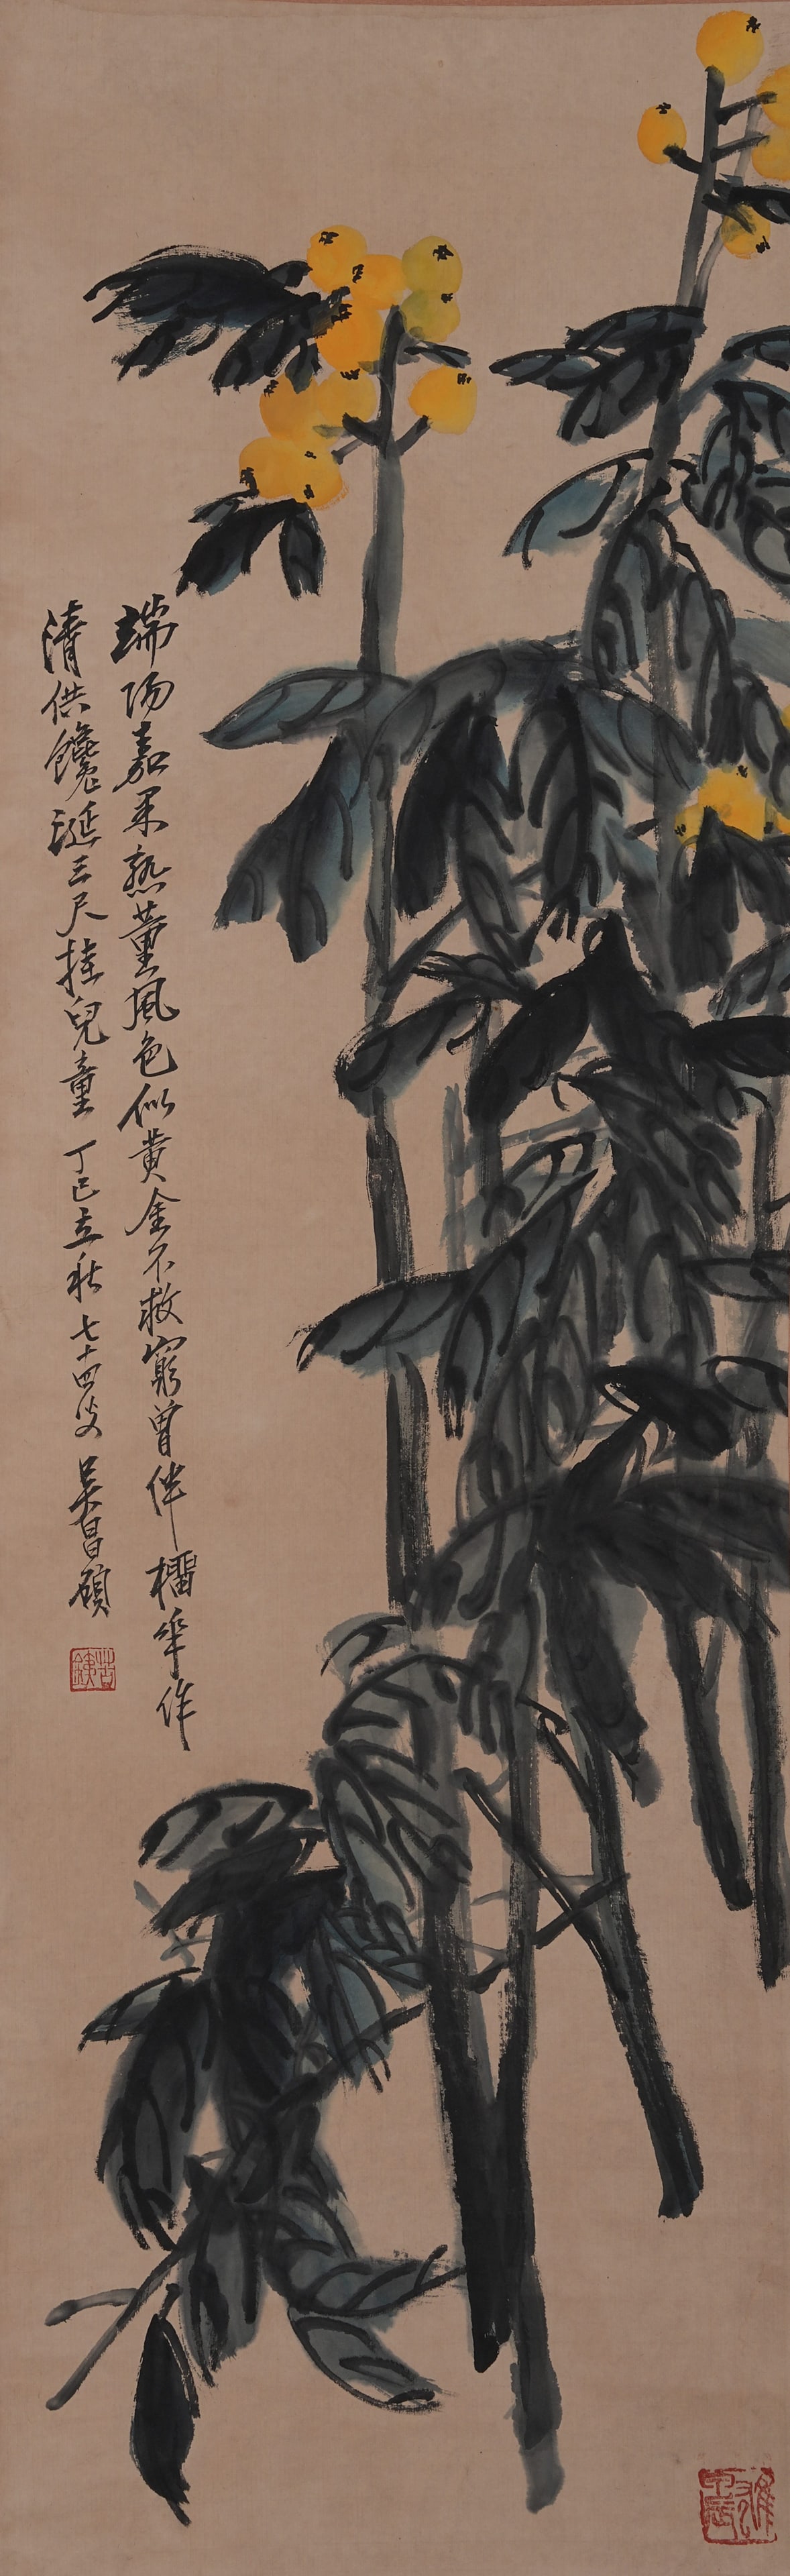 端陽嘉果熟薰風色似黃金不救窮曾伴榴華作
清供饞涎三尺挂兒童 丁巳立秋 七十四叟 吳昌碩
苦鐵